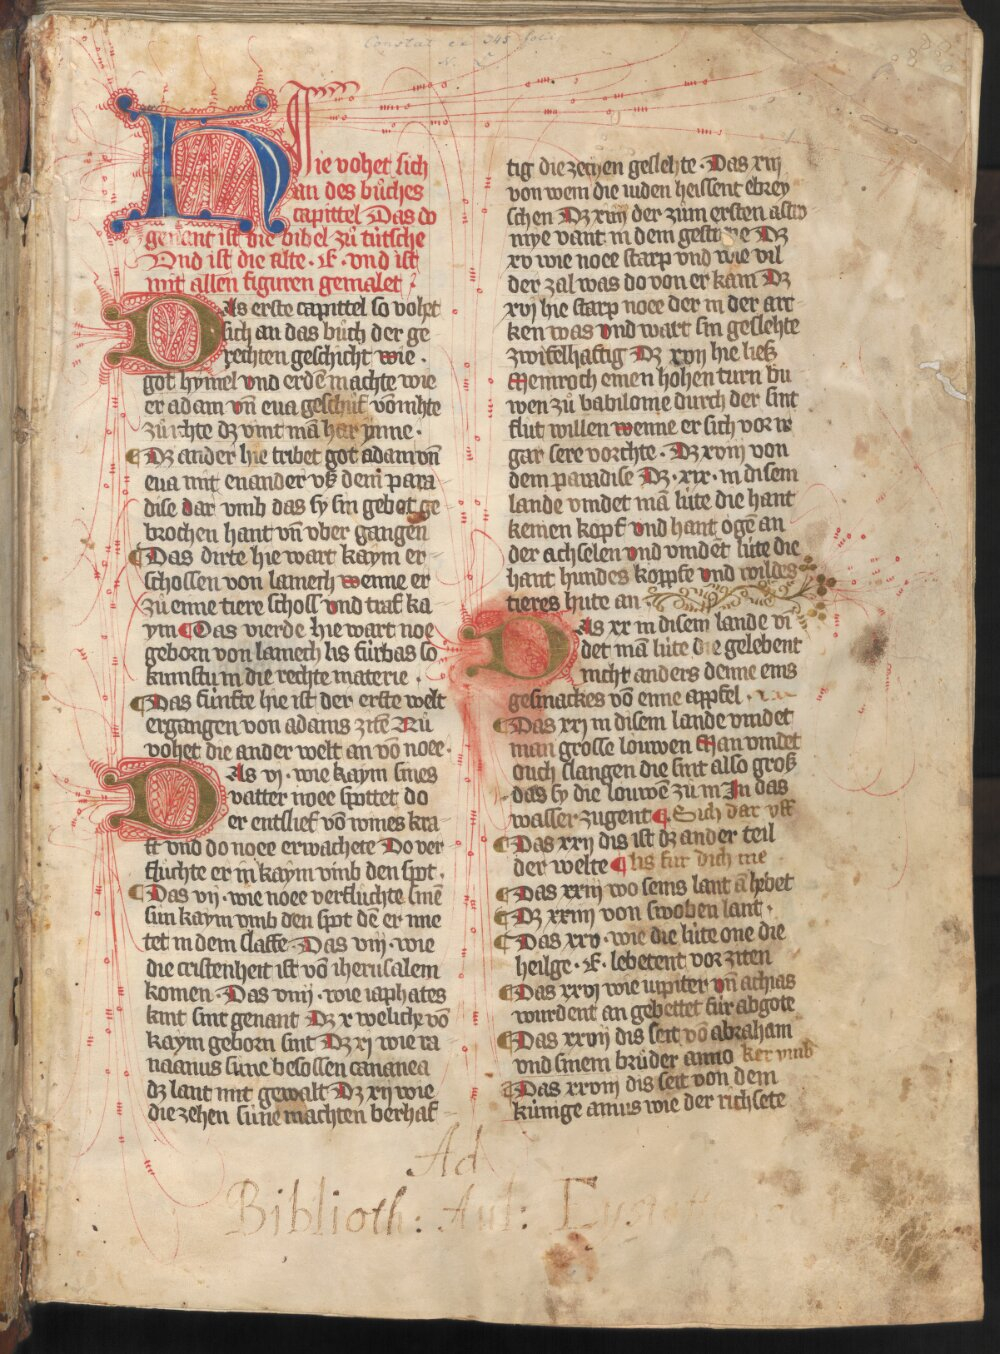 Constat ex 345 foliis
Hie vohet sich
an des bůches
capittel Das do
genant ist die bibel zů tútsche
Vnd ist die alte · E · vnd ist
mit allen figuren gemalet
Das erste capittel so vohet
sich an das bůch der ge
rechten geschicht wie ·
got hymel vnd erdē machte wie
er adam vn̄ eua geschůf vō nihte
zů ihte dz vint mā har jnne ·
Dz ander hie tribet got adam vn̄
eua mit einander vß dem para
dise dar vmb das sy sin gebot ge
brochen hant vn̄ vber gangen
Das dirte hie wart kaym er
schossen von lamech wenne er
zů eime tiere schoss vnd traf ka
ym Das vierde hie wart noe
geborn von lamech lis fúrbas so
kumstu in die rechte materie ·
Das fúnfte hie ist der erste welt
ergangen von adams zitē Nů
vohet die ander welt an vō noee ·
Das vi · wie kaym sines
vatter noee spottet do
er entslief vō wines kra
ft vnd do noee erwachete Do ver
flůchte er in kaym vmb den spot ·
Das vij · wie noee verflůchte sinē
sun kaym vmb den spot dē er ime
tet in dem slaffe · Das viij · wie
die cristenheit ist vō iherusalem
komen · Das viiij · wie iaphates
kint sint genant Dz x weliche vō
kaym geborn sint Dz xi wie ca
naanus súne besossen cananea
dz lant mit gewalt Dz xij wie
die zehen súne machten berhaf
tig die zechen geslehte · Das xiij
von wem die iuden heissent ebrey
schen Dz xiiij der zům ersten astro
mye vant in dem gestirne Dz
xv wie noee starp vnd wie vil
der zal was do von er kam Dz
xvi hie starp noee der in der arc
ken was vnd wart sin geslehte
zwifelhaftig Dz xvij hie ließ
Memroch einen hohen turn bu
wen zů babilonie durch der sint
flut willen wenne er sich vor ir
gar sere vorchte · Dz xviij von
dem paradise Dz · xix · in disem
lande vindet mā lúte die hant
keinen kopf vnd hant ogē an
der achselen vnd vindēt lúte die
hant hundes kŏpfe vnd wildes
tieres húte an
Das xx in disem lande vi
det mā lúte die gelebent
nicht anders denne eins
gesmackes vō eime appfel ·
Das xxj in disem lande vindet
man grosse louwen Man vindet
ouch slangen die sint also groß
das sy die louwē zů in In das
wasser zugent Sich dar vff
Das xxij dis ist dz ander teil
der welte lis fur dich me
Das xxiij wo seins lant a hebet
Dz xxiiij von swoben lant ·
Das xxv · wie die lúte one die
heilge · E · lebetent vor ziten
Das xxvj wie iupiter vn̄ achias
wurdent an gebettet fúr abgote
Das xxvij dis seit vō abraham
vnd sinem brůder anno ker vmb
Das xxviij dis seit von dem
kúnige amus wie der richsete
Ad
Biblioth: Aul: Eystettens